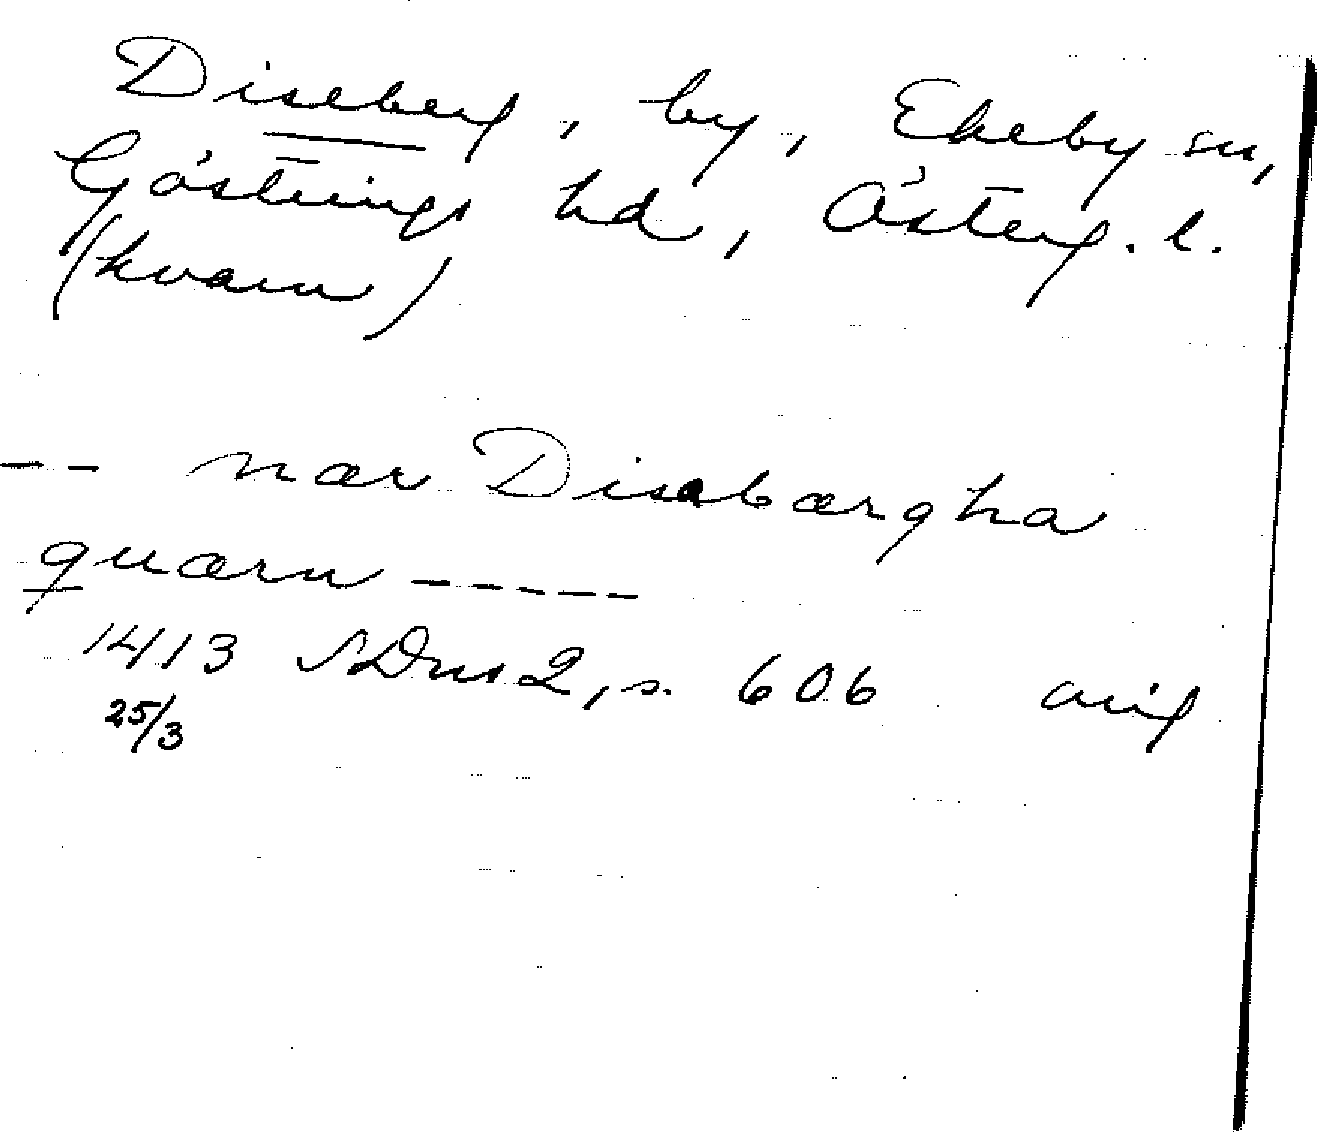 Diseberg, by, Ekeby sn,
Göstrings hd, Österg. l.
(kvarn)
-- nær Disabærgha
quærn -----
1413 SDns 2, s. 606 avig
25/3